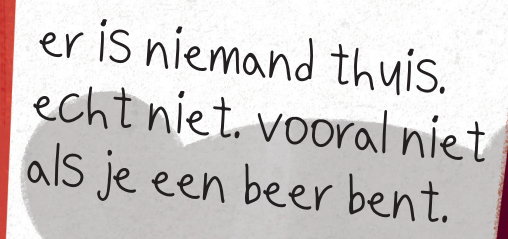 er is niemand thuis.
echt niet. vooral niet
als je een beer bent.